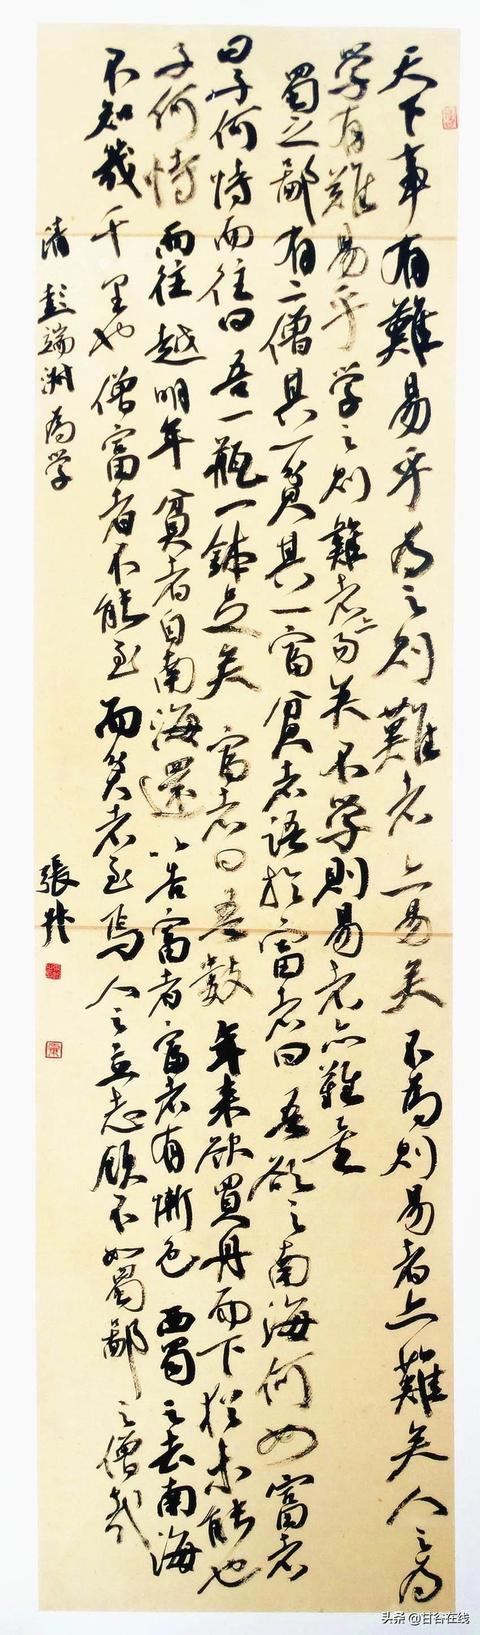 天下事有難易乎为之则難者亦易矣不為则易者亦難矣人之为
学有難易乎学之则難者亦易矣不学則易者亦難矣
蜀之鄙有二僧其一贫其一富贫者語於富者曰吾欲之南海何如富者
曰子何恃而往曰吾一瓶一鉢足矣富者曰吾数年来欲買舟而下猶未能也
子何恃而往越明年貧者自南海還以告富者富者有慚色西蜀之去南海
不知幾千里也僧富者不能至而贫者至焉人之立志顧不如蜀鄙之僧哉
清彭端淑為学
張
头条 @甘谷在线